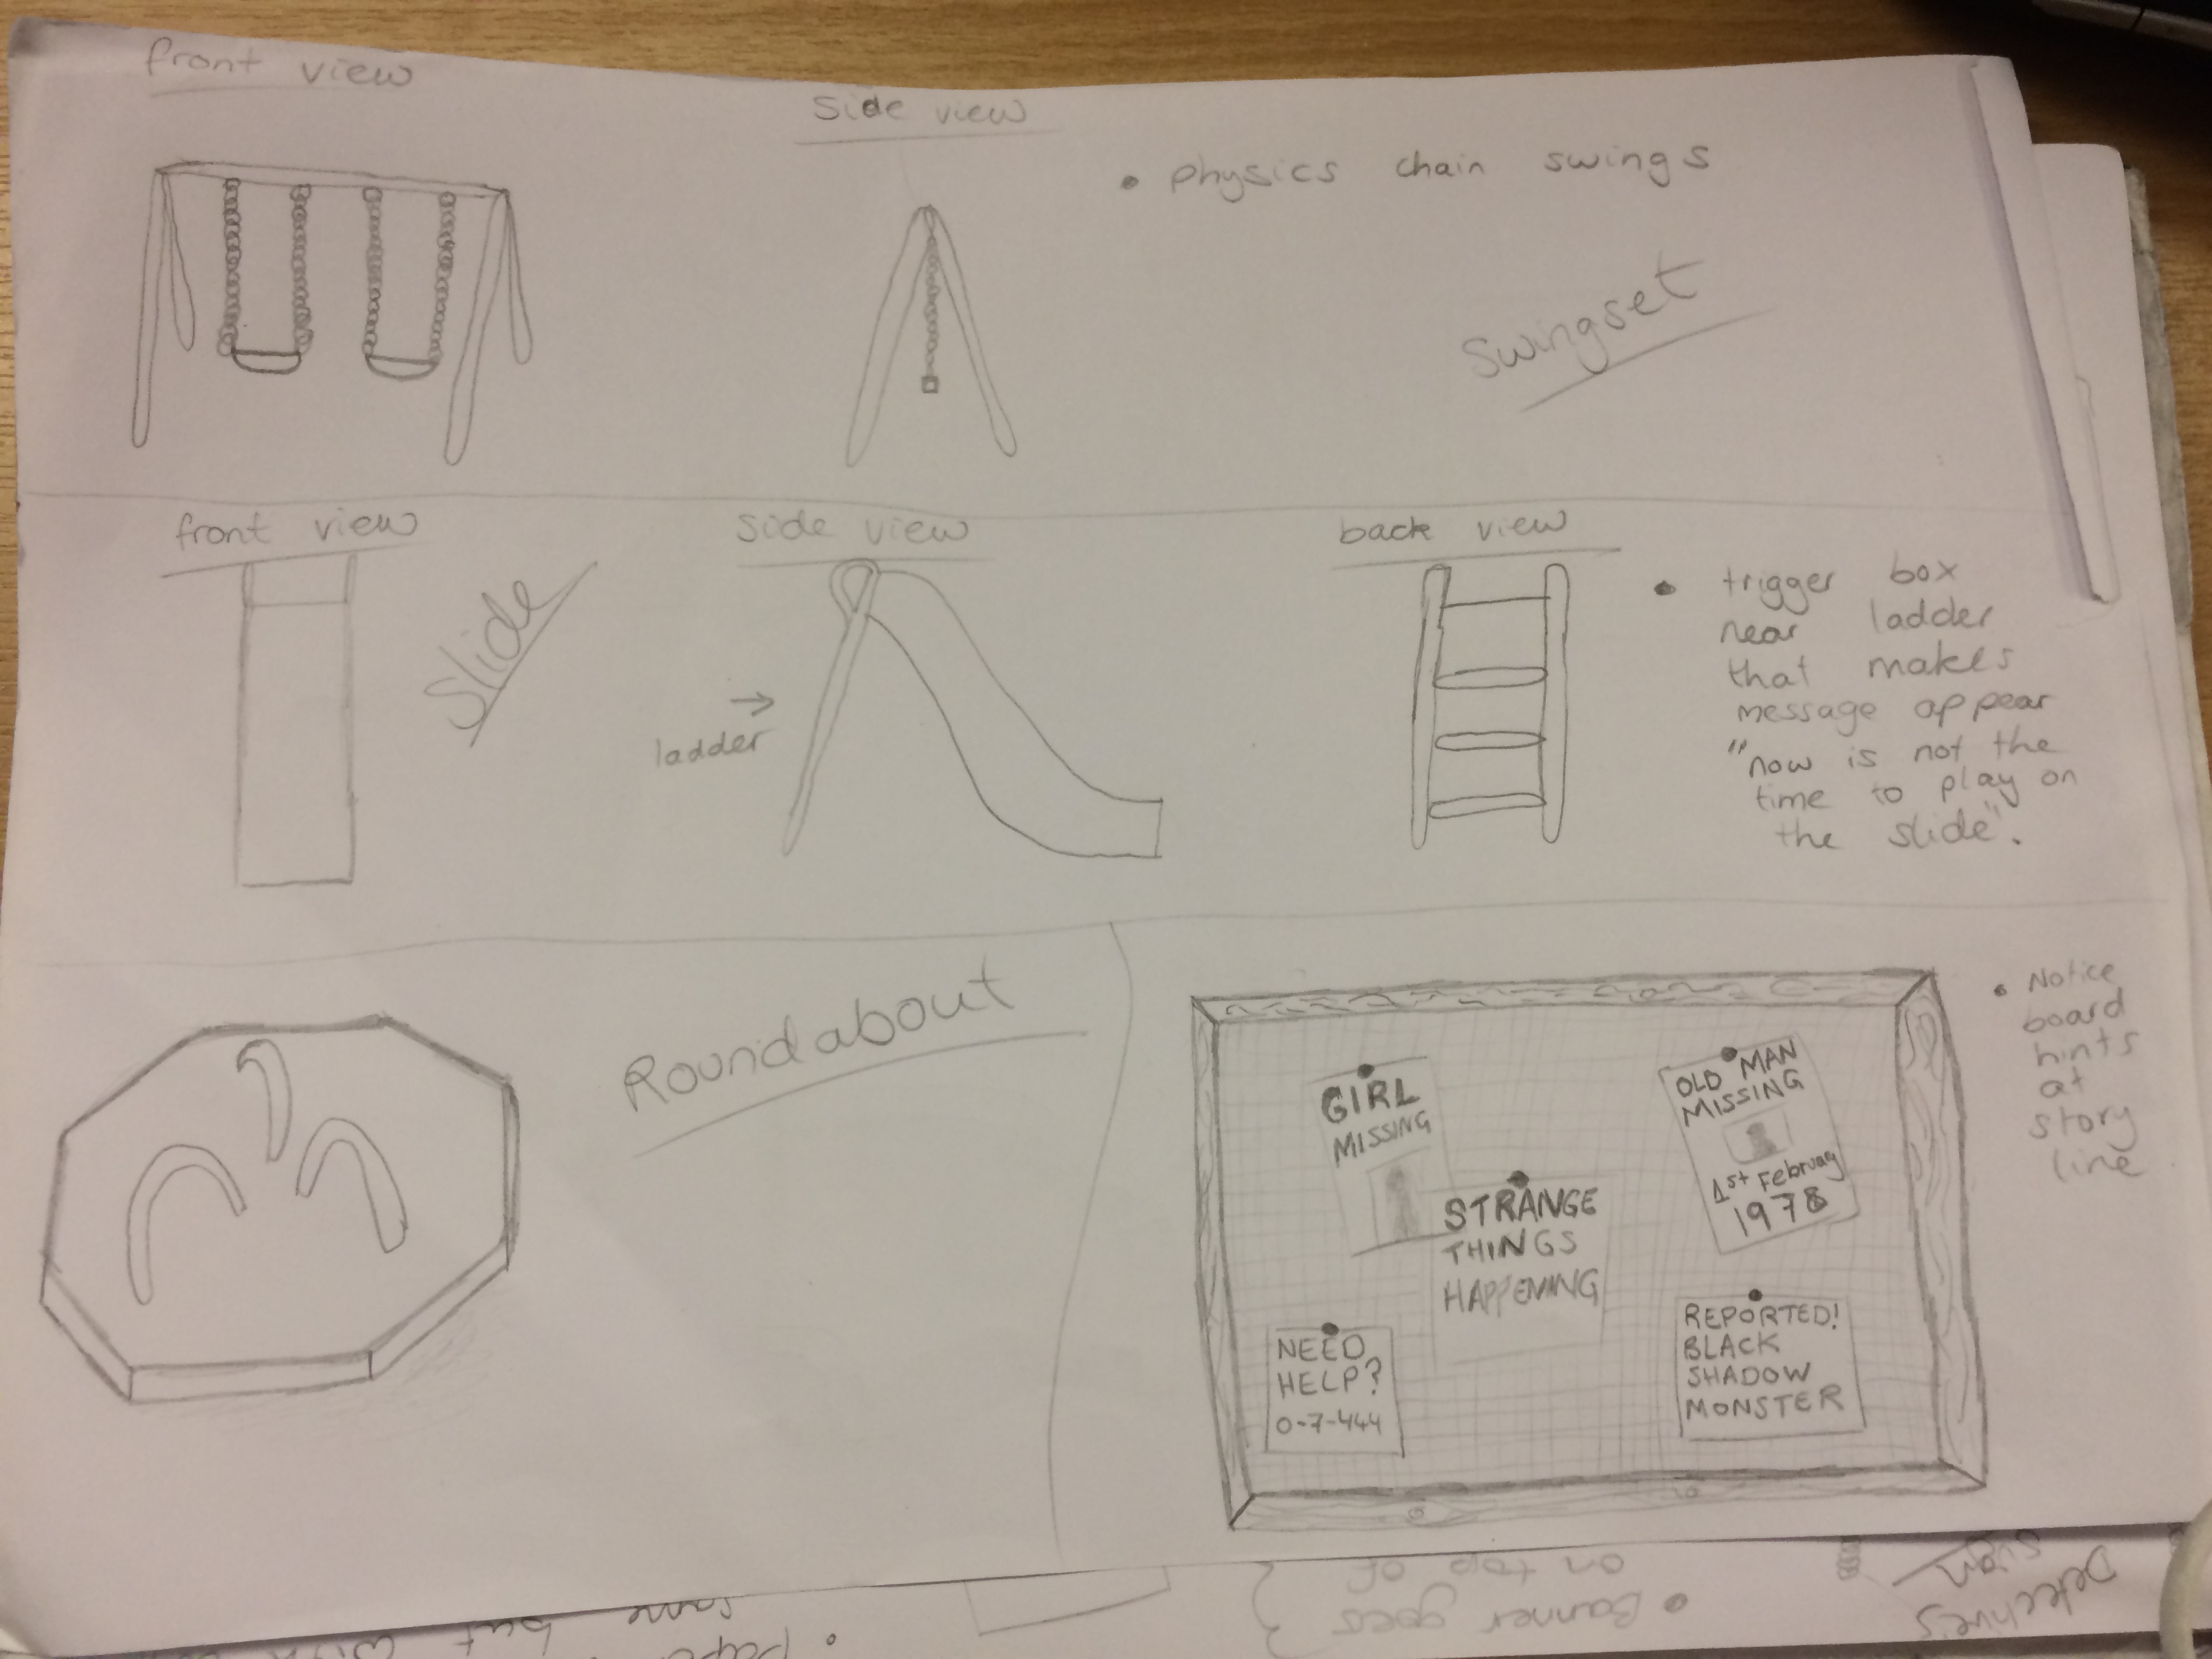 front view
Side view
• physics chain swings
Swingset
front view
Slide
Side view
ladder
back view
• trigger box
near ladder
that makes
message appear
"now is not the
time to play on
the slide".
Roundabout
GIRL
MISSING
NEED
HELP?
0-7-444
STRANGE
THINGS
HAPPENING
OLD MAN
MISSING
1st February
1978
REPORTED!
BLACK
SHADOW
MONSTER
• Notice
board
hints
at
story
line
same but with
• Banner goes
on top of
sign